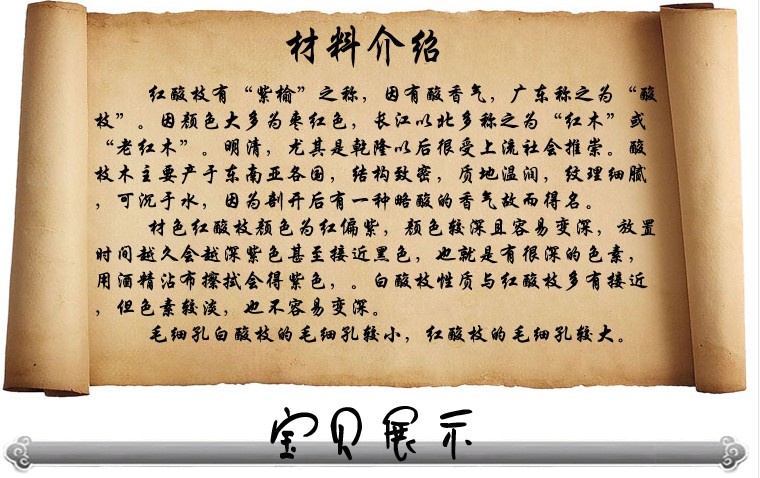 材料介绍
红酸枝有“紫榆”之称，因有酸香气，广东称之为“酸
枝”。因颜色大多为枣红色，长江以北多称之为“红木”或
“老红木”。明清，尤其是乾隆以后很受上流社会推崇。酸
枝木主要产于东南亚各国，结构致密，质地温润，纹理细腻
，可沉于水，因为剖开后有一种略酸的香气故而得名。
材色红酸枝颜色为红偏紫，颜色较深且容易变深，放置
时间越久会越深紫色甚至接近黑色，也就是有很深的色素，
用酒精沾布擦拭会得紫色，。白酸枝性质与红酸枝多有接近
，但色素较淡，也不容易变深。
毛细孔白酸枝的毛细孔较小，红酸枝的毛细孔较大。
宝贝展示